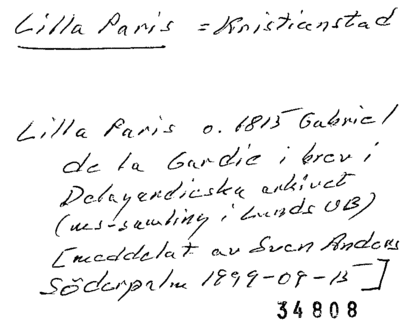 Lilla Paris = Kristianstad
Lilla Paris o. 1815 Gabriel
de la Gardie i brev i
Delagardieska arkivet
(ms-samling i Lunds UB)
[meddelat av Sven Anders
Söderpalm 1999-09-15]
34808